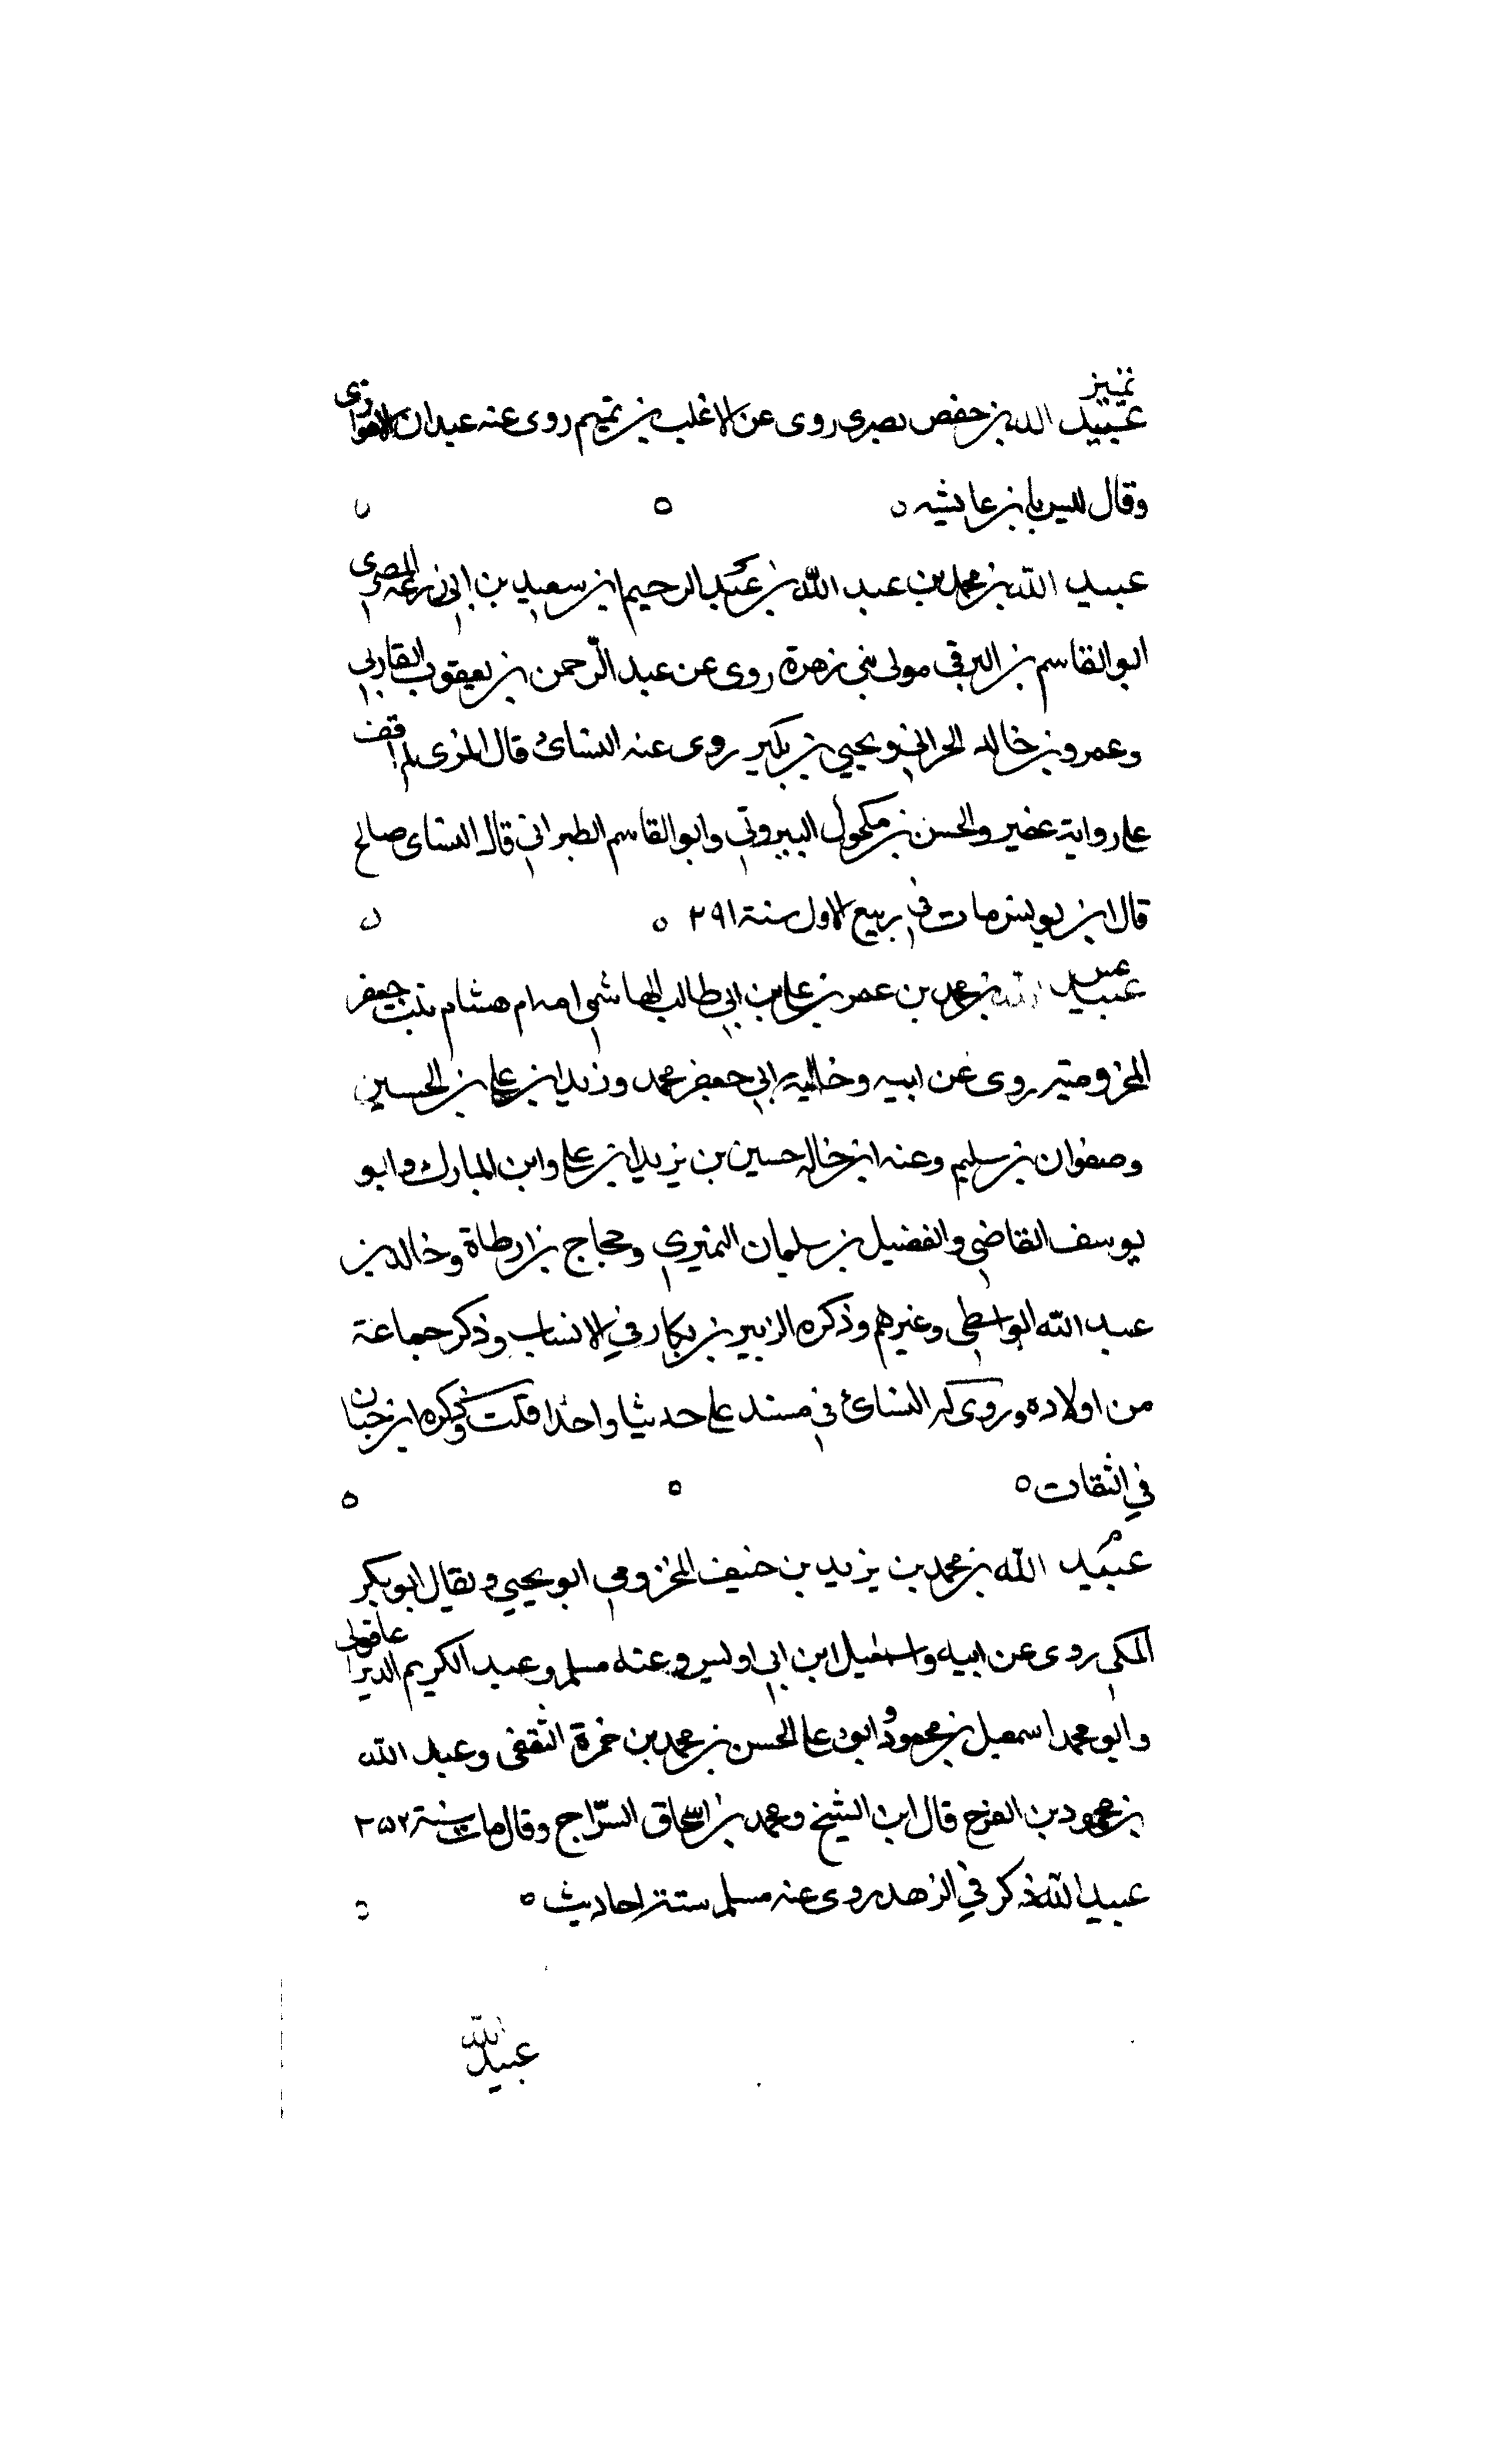 تمييز
عبيد الله بن حفص بصرى روى عن الاغلب بن تميم روى عنه عبدان الاهوازى
وقال ليس بابن عايشه ه
عبيد الله بن محمد بن عبد الله بن عبد الرحيم ابن سعيد بن ابى زرعه المصرى
ابو القاسم بن البرقى مولى بنى زهرة روى عن عبد الرحمن بن يعقوب
وعمرو بن خالد الحرانى ويحيى بن بكير روى عنه النسائ قال المزى لم اقف
على رواية عنه والحسن بن مكحول البيروتي وابو القاسم الطبرانى قال النساى صالح
قال ابن يونس مات فى ربيع الاول سنة ٢٩١ ه
عس
عبيد الله بن محمد بن عمر بن على بن ابي طالب الهاشمى امه ام هشام بنت جعفر
المخزومية روى عن ابيه وخاليه ابى جعفر محمد وزيد ابن على بن الحسين
وصفوان بن سليم وعنه ابن خاله حسين بن زيد ابن على وابن المبارك وابو
يوسف القاضى والفضيل بن سليمان النميرى وحجاج بن ارطاة وخالد بن
عبد الله الواسطى وغيرهم وذكره الزبير بن بكار في الانساب وذكر جماعة
من اولاده وروى له النسائ فى مسند على حديثا واحدا قلت وذكره ابن حبان
في الثقات ه
م
عبيد الله بن محمد بن يزيد بن خنيف المخزومى ابو يحيى ويقال ابو بكر
المكى روى عن ابيه واسمعيل ابن ابى اويس وعنه مسلم وعبد الكريم الديرعاقولى
وابو محمد اسمعيل بن محمود وابو على الحسن بن محمد بن حمزة الثقفى وعبد الله
بن محمود بن الفرج قال ابن الشيخ ومحمد بن اسحاق السراج وقال مات سنة ٢٥٢
عبيد الله ذكر في الزهد روى عنه مسلم ستة احاديث ه
عبيد الله